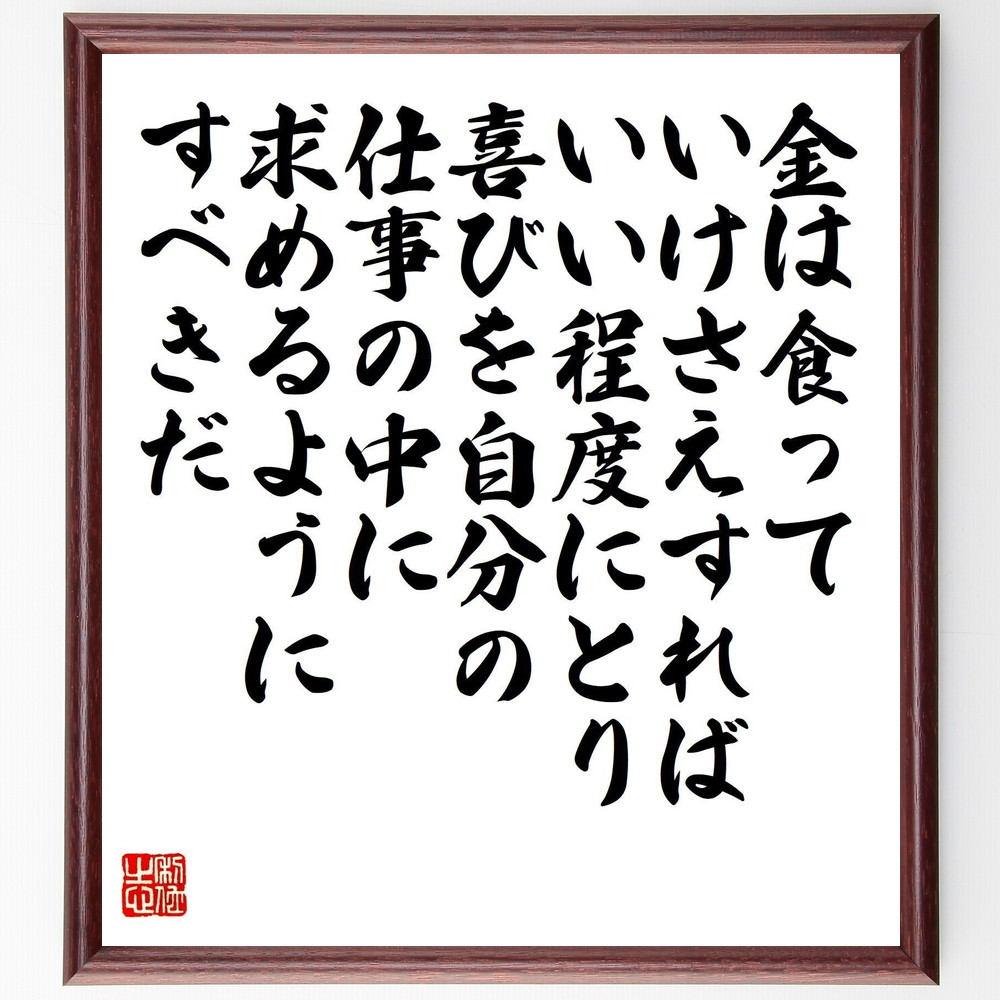 金は食って
いけさえすれば
いい程度にとり
喜びを自分の
仕事の中に
求めるように
すべきだ